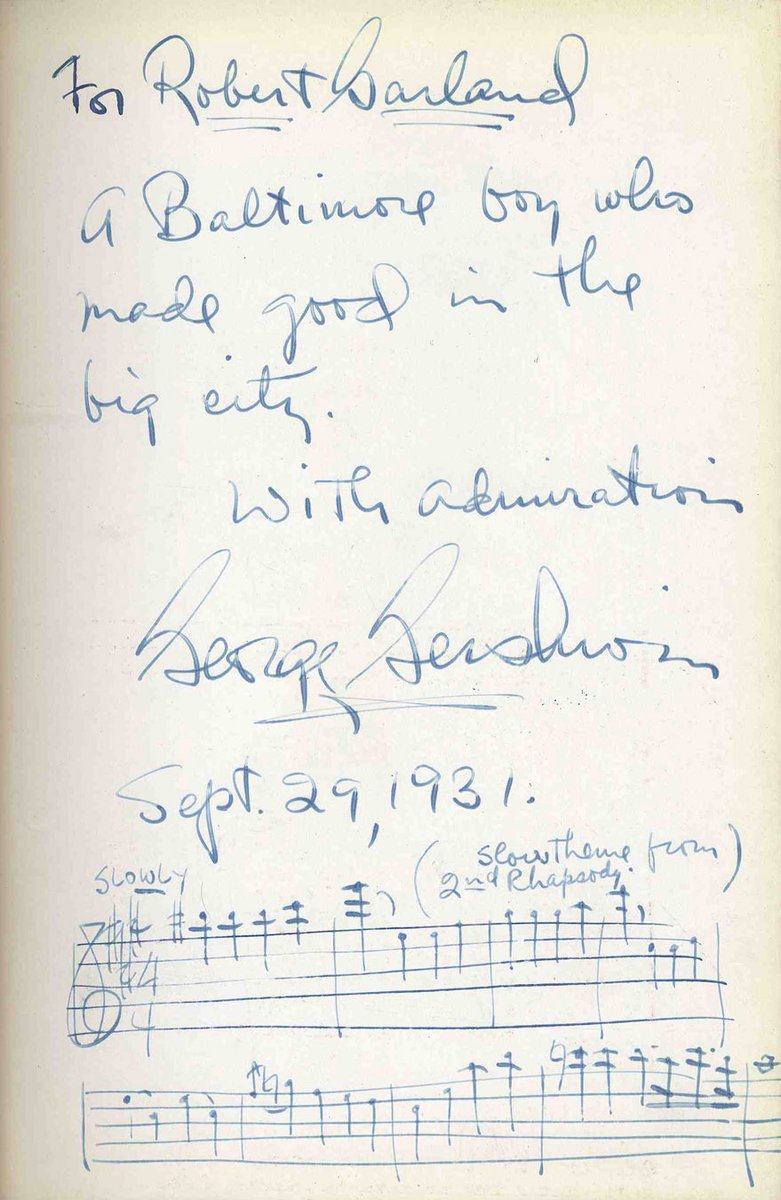 For Robert Garland
A Baltimore boy who
made good in the
big city.
With admiration
George Gershwin
Sept. 29, 1931.
(slow theme from)
2nd Rhapsody.
SLOWLY
4
4